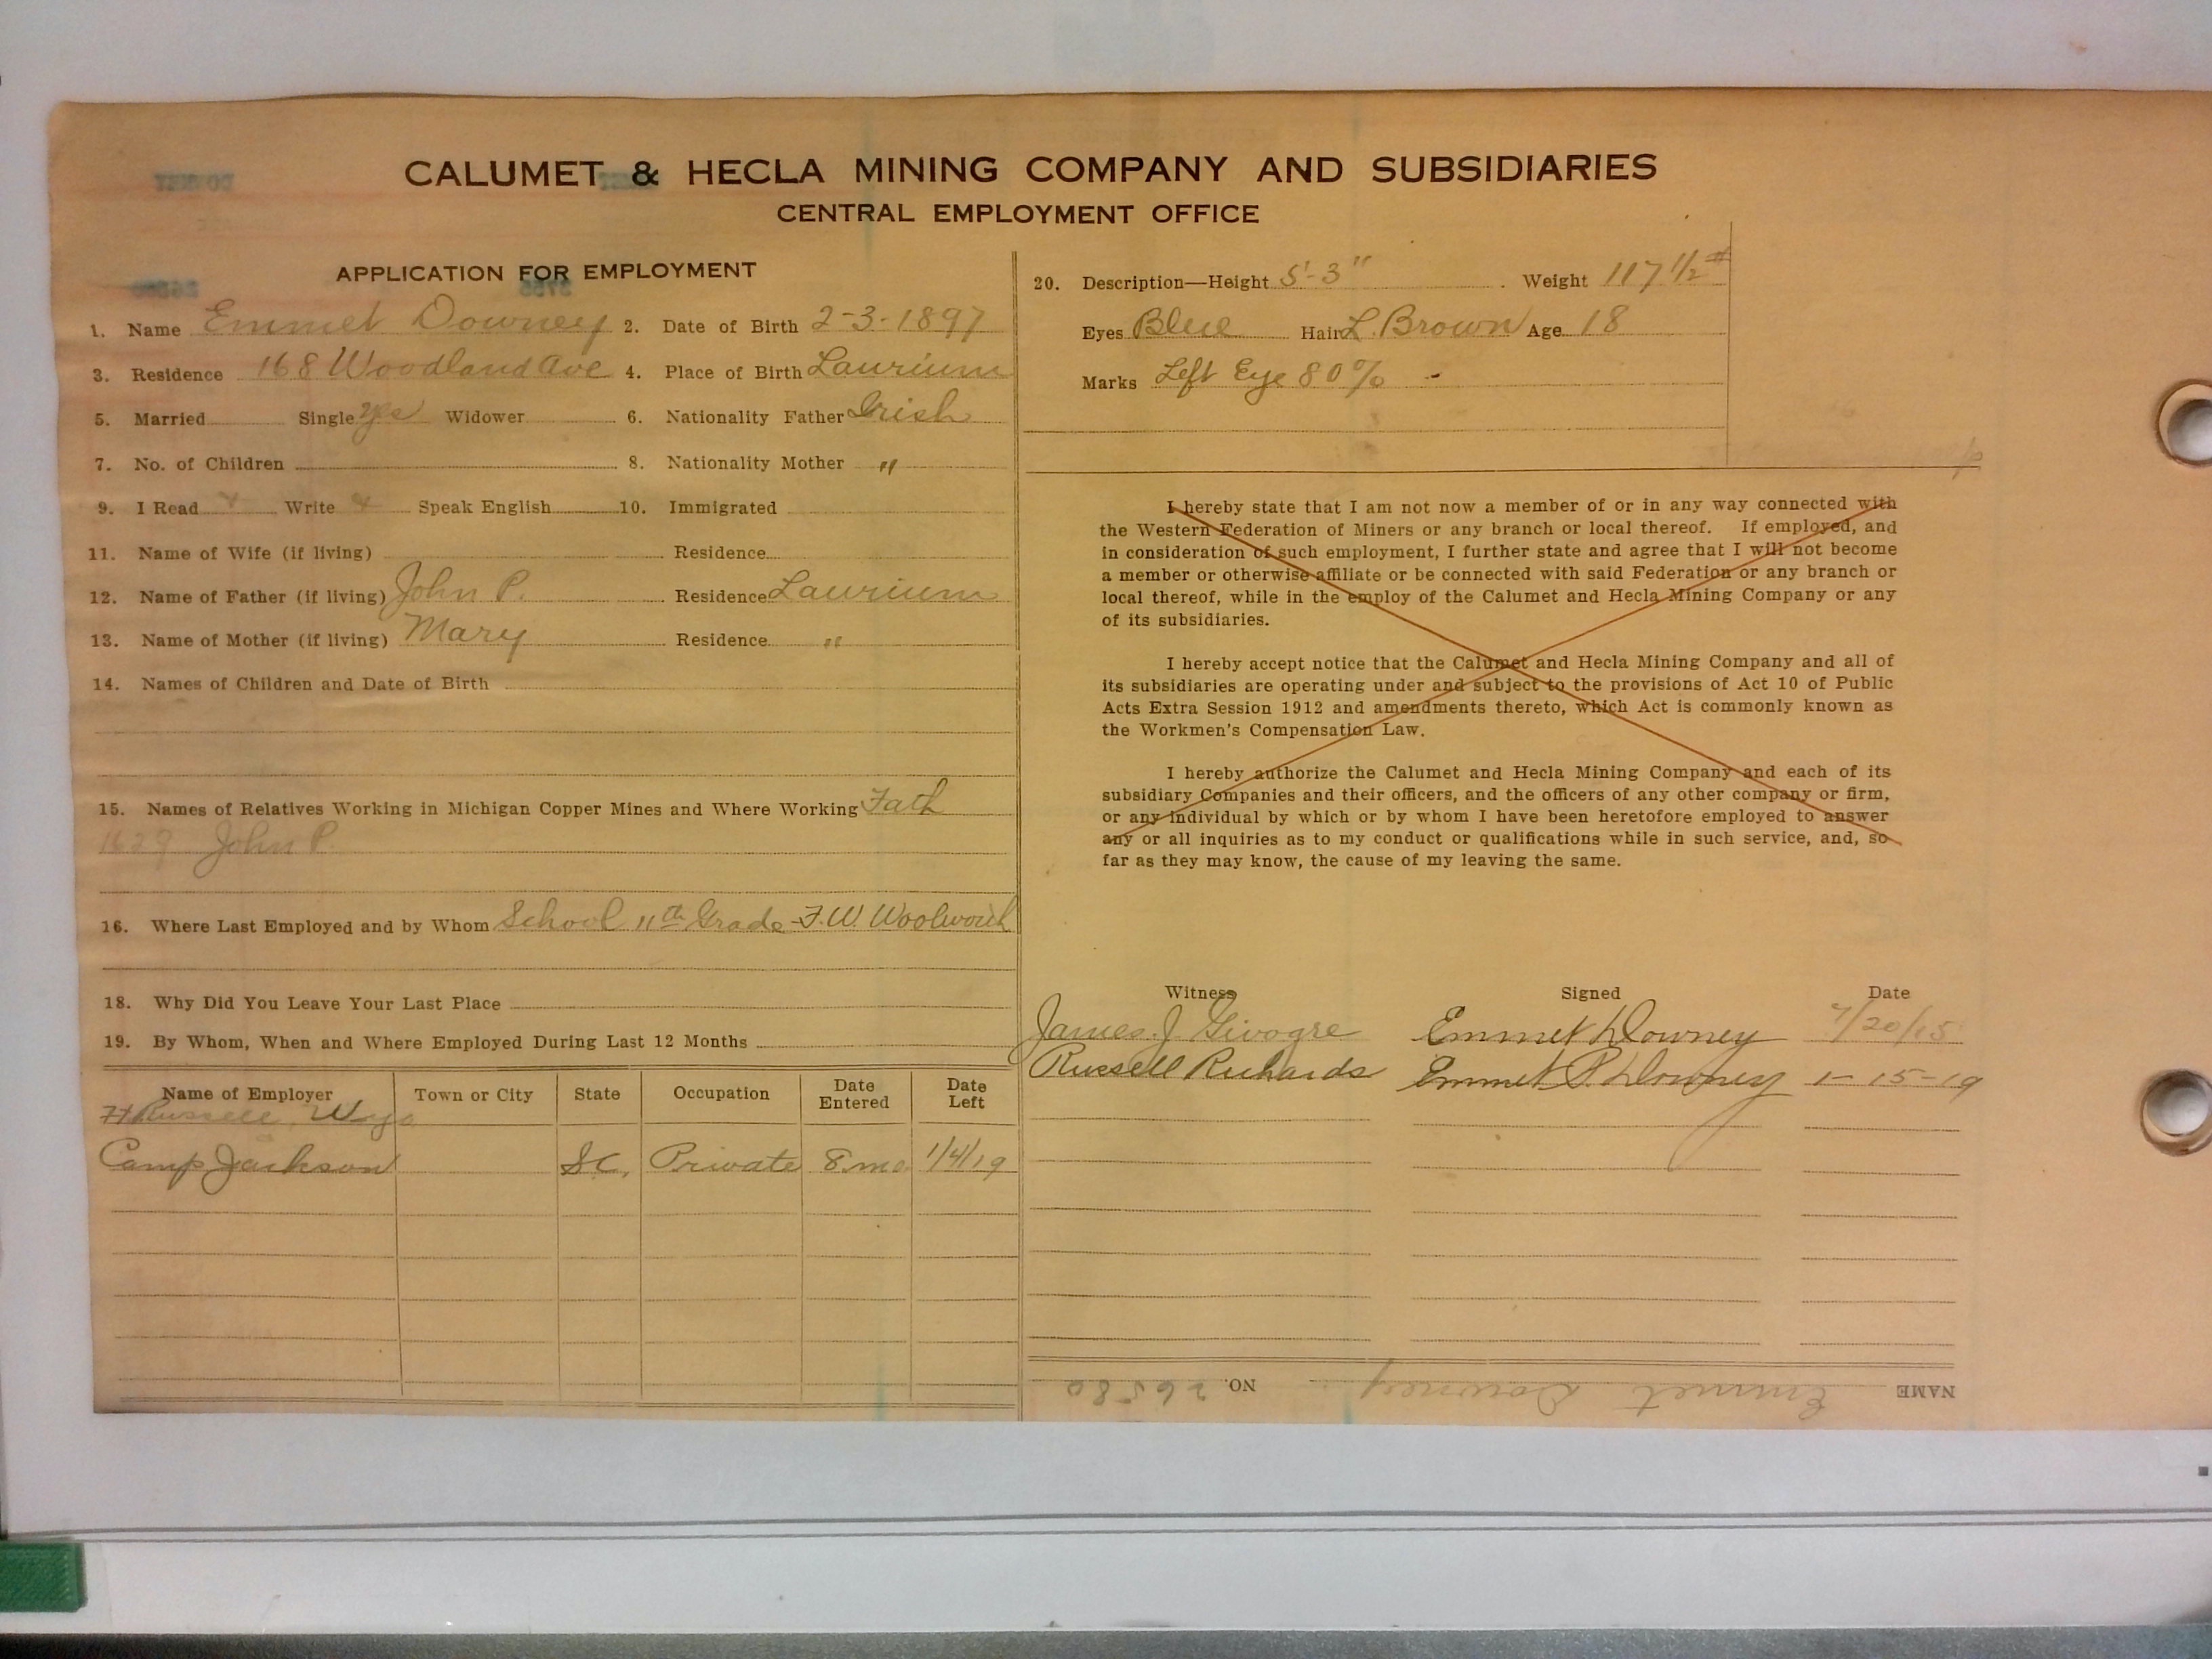 CALUMET & HECLA MINING COMPANY AND SUBSIDIARIES
CENTRAL EMPLOYMENT OFFICE
APPLICATION FOR EMPLOYMENT
1. Name Emmet Downey 2. Date of Birth 2-3-1897
3. Residence 168 Woodland Ave 4. Place of Birth Laurium
5. Married Single yes Widower 6. Nationality Father Irish
7. No. of Children 8. Nationality Mother "
9. I Read Write Speak English 10. Immigrated
11. Name of Wife (if living) Residence
12. Name of Father (if living) John P. Residence Laurium
13. Name of Mother (if living) Mary Residence "
14. Names of Children and Date of Birth
15. Names of Relatives Working in Michigan Copper Mines and Where Working Fath
1629 John P.
16. Where Last Employed and by Whom School 11th Grade - F.W. Woolworth
18. Why Did You Leave Your Last Place
19. By Whom, When and Where Employed During Last 12 Months
Name of Employer Town or City State Occupation Date Entered Date Left
Ft Russell, Wyo
Camp Jackson S.C. Private 8 mo 1/4/19
20. Description—Height 5'-3" Weight 117 1/2 #
Eyes Blue Hair L. Brown Age 18
Marks Left Eye 80% -
I hereby state that I am not now a member of or in any way connected with
the Western Federation of Miners or any branch or local thereof. If employed, and
in consideration of such employment, I further state and agree that I will not become
a member or otherwise affiliate or be connected with said Federation or any branch or
local thereof, while in the employ of the Calumet and Hecla Mining Company or any
of its subsidiaries.
I hereby accept notice that the Calumet and Hecla Mining Company and all of
its subsidiaries are operating under and subject to the provisions of Act 10 of Public
Acts Extra Session 1912 and amendments thereto, which Act is commonly known as
the Workmen's Compensation Law.
I hereby authorize the Calumet and Hecla Mining Company and each of its
subsidiary Companies and their officers, and the officers of any other company or firm,
or any individual by which or by whom I have been heretofore employed to answer
any or all inquiries as to my conduct or qualifications while in such service, and, so
far as they may know, the cause of my leaving the same.
Witness Signed Date
James J Givogre Emmet Downey 7/20/15
Russell Richards Emmet P. Downey 1-15-19
NAME Emmet Downey NO. 26580